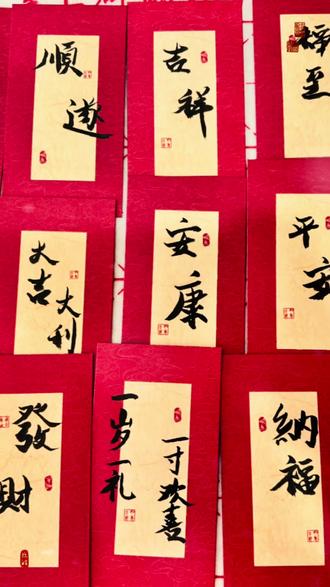 順遂
吉祥
至
大吉
大利
安康
平安
發財
一岁一礼
一寸欢喜
納福